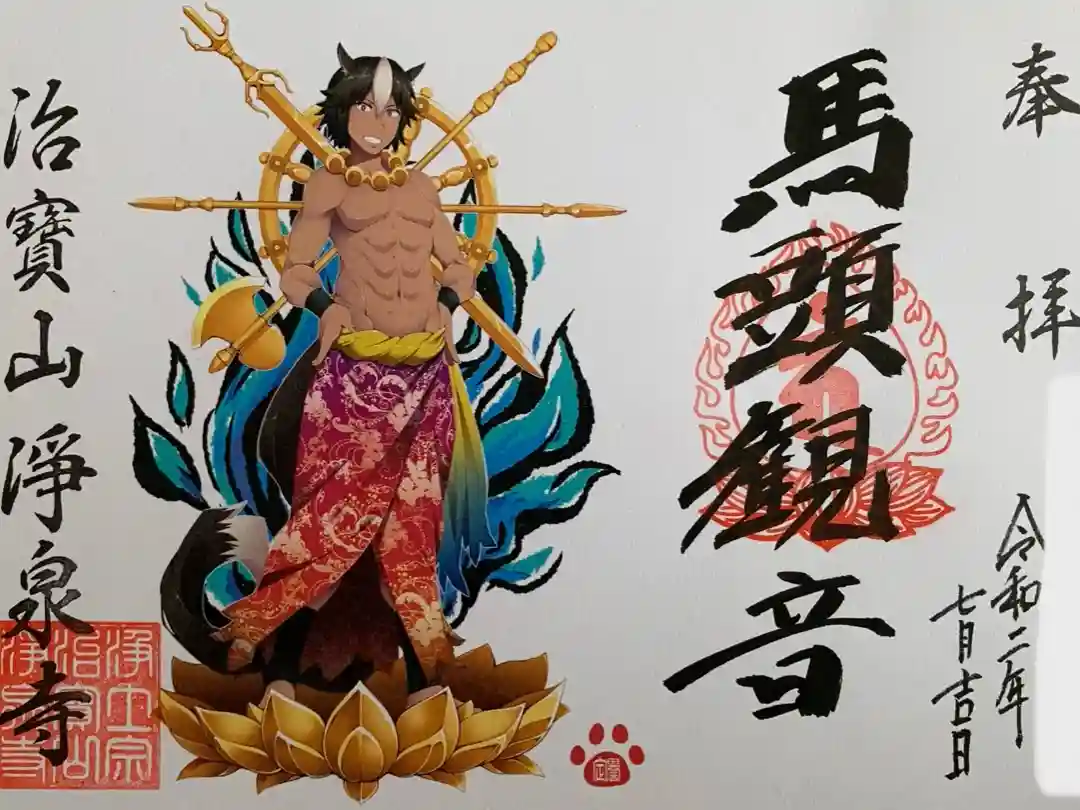 奉拝
令和二年
七月吉日
馬頭観音
治寳山淨泉寺
浄土宗
治寳山
浄泉寺